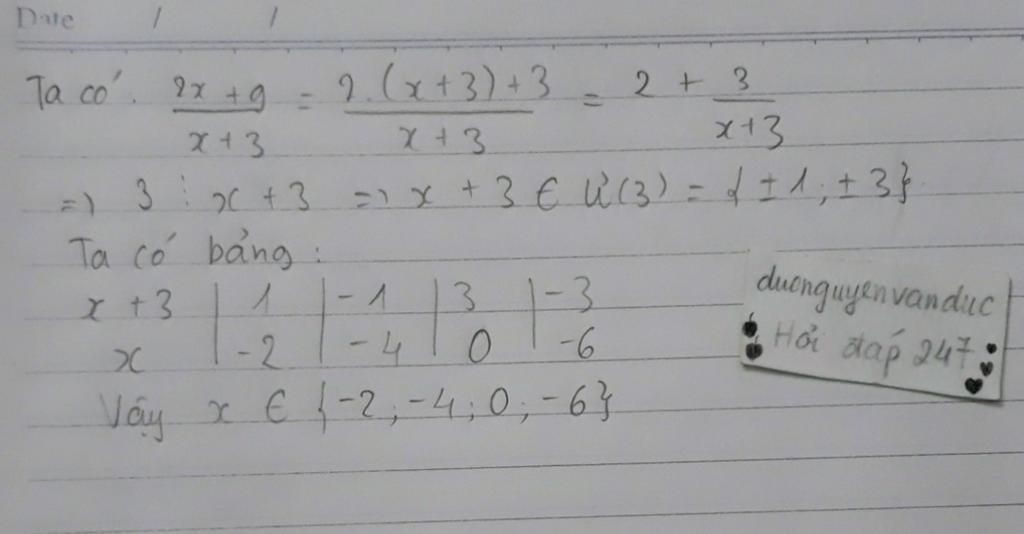 Date / /
Ta có. 2x + 9 / x + 3 = 2.(x+3)+3 / x + 3 = 2 + 3 / x+3
=> 3 ⋮ x + 3 => x + 3 ∈ Ư(3) = {±1; ±3}
Ta có bảng:
x + 3 | 1 | -1 | 3 | -3
x | -2 | -4 | 0 | -6
Vậy x ∈ {-2; -4; 0; -6}
duonguyenvanduc
Hỏi đáp 247